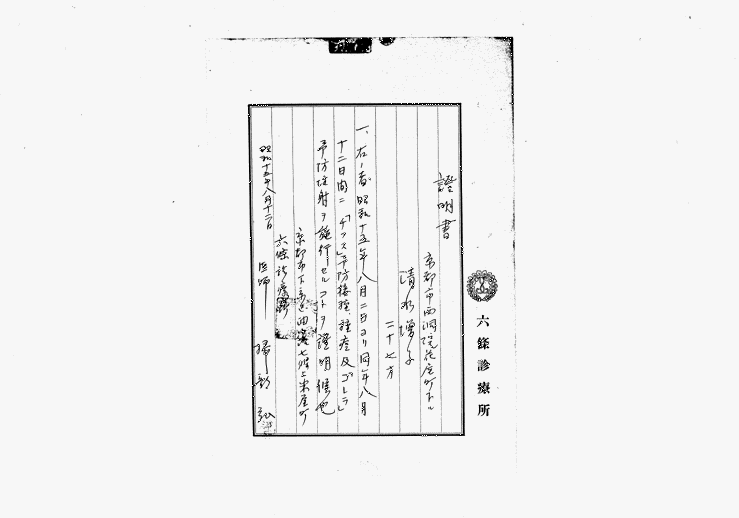 證明書
京都市西洞院花屋町下ル
清水増子
二十七才
一、右ノ者昭和十五年八月二日ヨリ同年八月
十二日間ニ「チフス」予防接種、種痘及「コレラ」
予防注射ヲ施行セルコトヲ證明候也
京都市下京區油小路七條上米屋町
六條診療所
昭和十五年八月十二日
医師
六條診療所